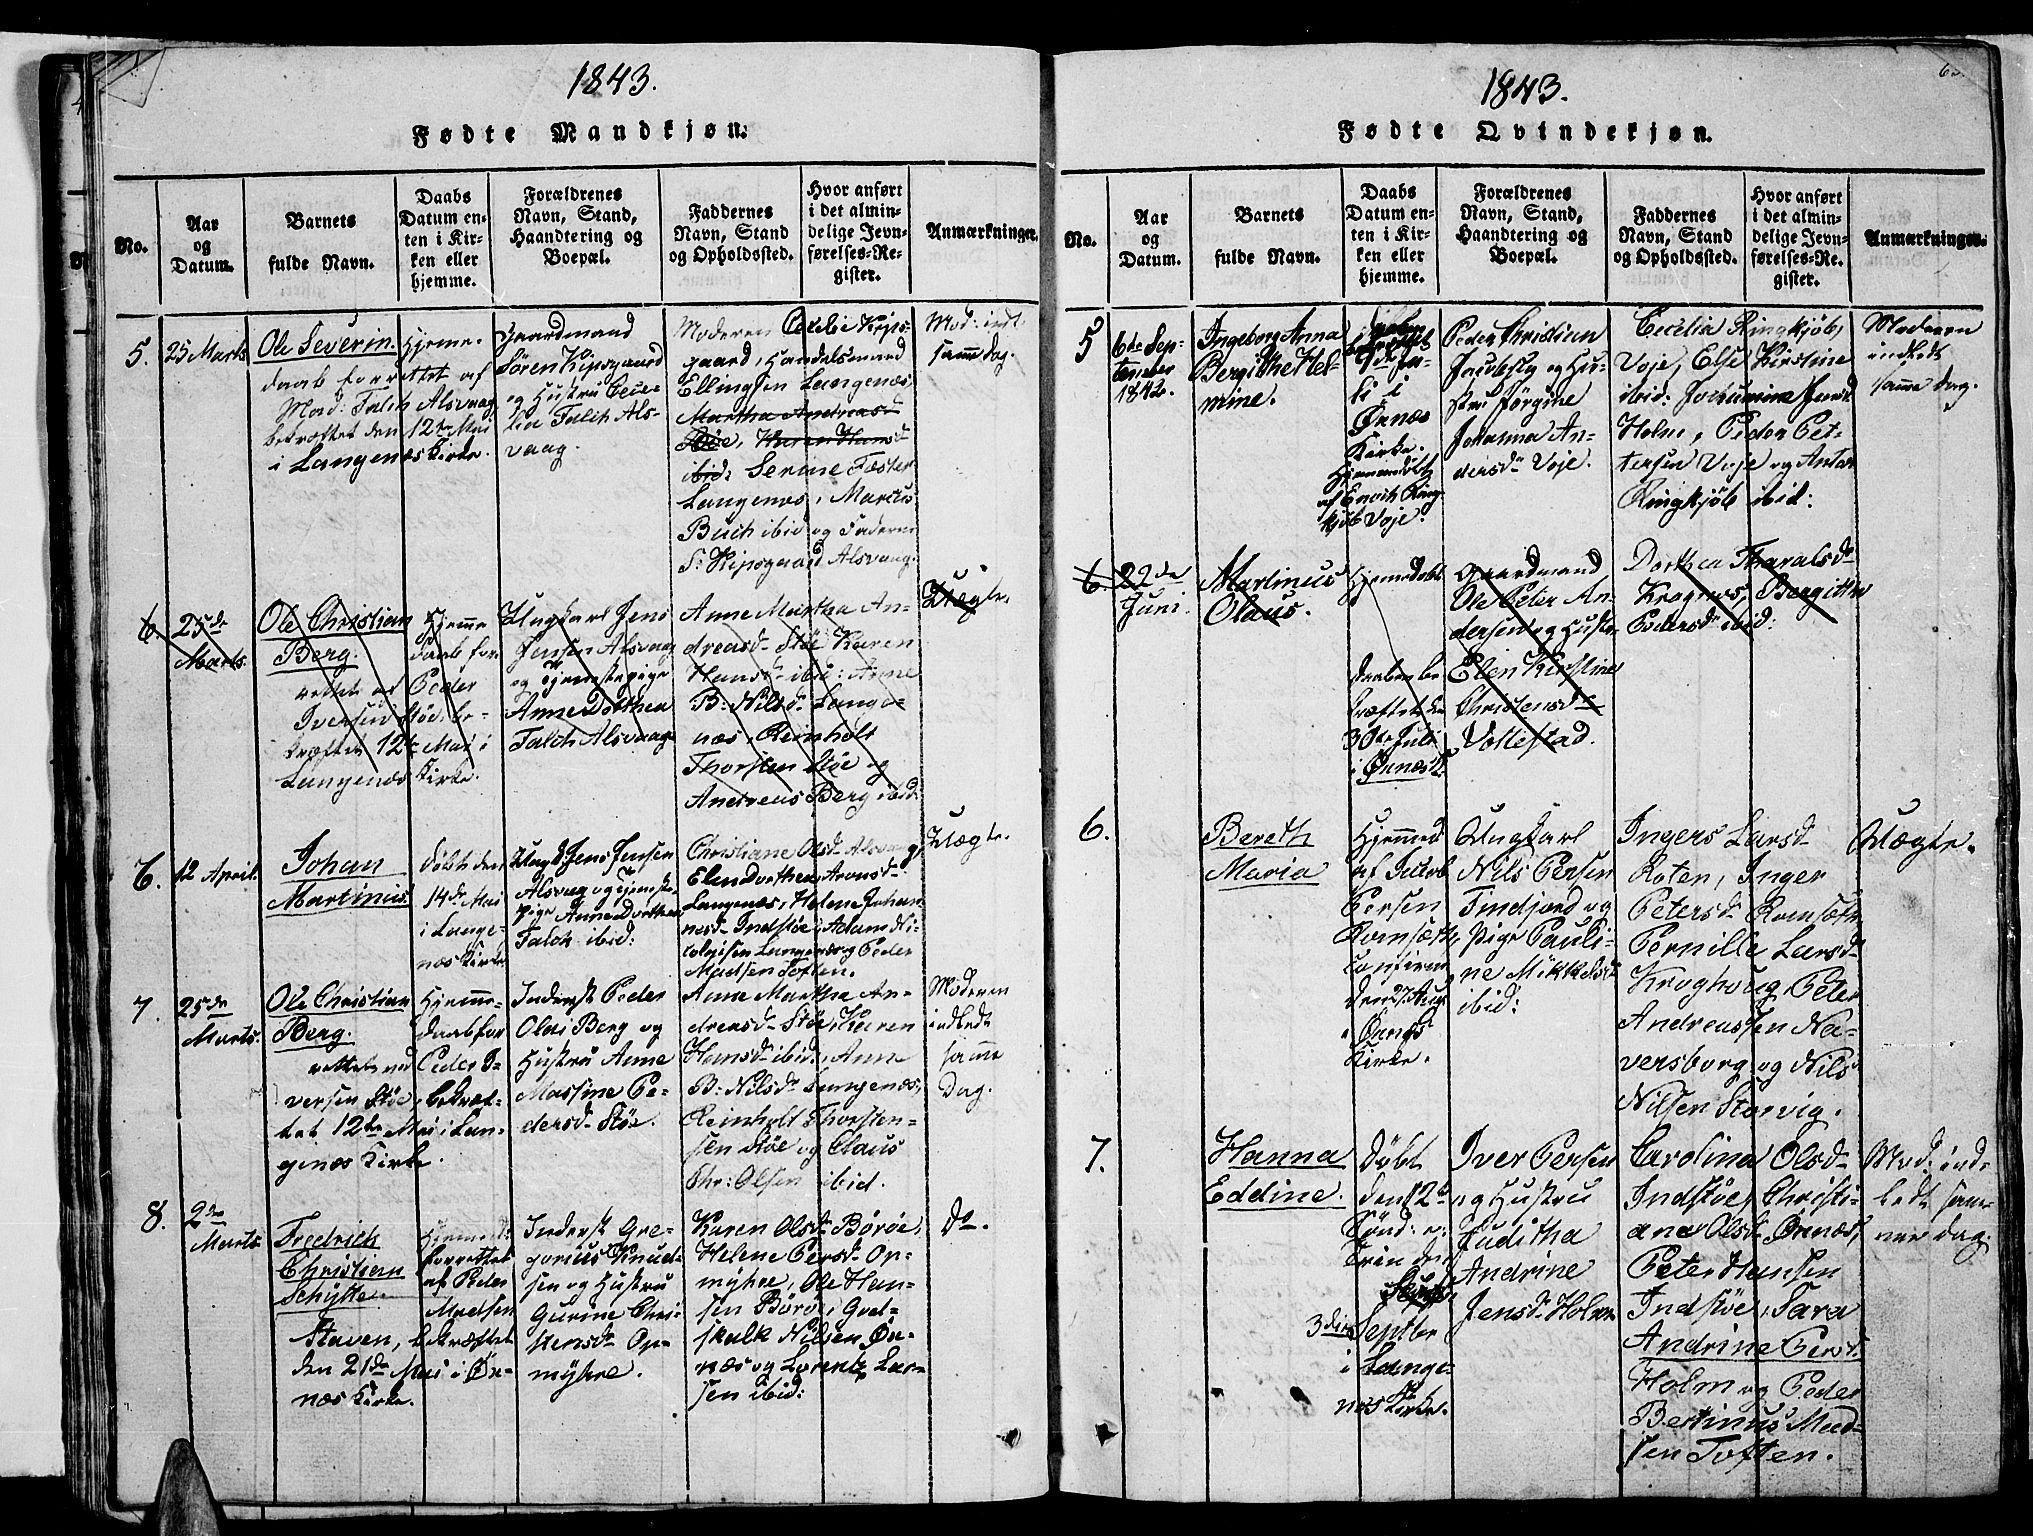 1843.
Fødte Mandkjøn.
No.
Aar
og
Datum.
Barnets
fulde Navn.
Daabs
Datum en-
ten i Kir-
ken eller
hjemme.
Forældrenes
Navn, Stand,
Haandtering og
Boepæl.
Faddernes
Navn, Stand
og Opholdssted.
Hvor anført
i det almin-
delige Jevn-
førelses-Re-
gister.
Anmærkninger.
5.
25 Marts
Ole Severin.
Hjemme-
daab forrettet af
Mad: Falch Alsvaag,
bekræftet den 12te Mai
i Langenæs Kirke.
Gaardmand
Sören Kipsgaard
og Hustru Ceci-
lia Falch Als-
vaag.
Moderen Cecilie Kips-
gaard, Handelsmand
Ellingsen Langenæs,
Martha Andreasd
Støe, Karen Hansd
ibid: Serine Fæster
Langenæs, Marcus
Buch ibid og Faderen
S. Kipsgaard Alsvaag.
Mod: indl.
samme dag.
6.
25de
Marts.
Ole Christian
Berg.
Hjemme
daab for-
rettet af Peder
Iversen Støe, be-
kræftet 12te Mai i
Langenæs Kirke.
Ungkarl Jens
Jensen Alsvaag
og Tjenestepige
Anne Dorthea
Falch Alsvaag
Anne Martha An-
dreasd. Støe, Karen
Hansd. ibid: Anne
B: Nilsd. Lange-
næs, Reinholt
Thorsten Støe og
Andreas Berg ibid:
Uægte.
6.
12 April.
Johan
Martinius.
døbt den
14de Mai
i Lange-
næs Kirke
Ungk. Jens Jensen
Alsvaag og Tjeneste-
pige Anne Dorthea
Falch ibid:
Christiane Olsd. Alsvaag,
Elen Dorthea Aronsd.
Langenæs, Helene Johan-
nesd. Indstøe, Adam Ni-
colaisen Langenæs og Peder
Madsen Toften.
Uægte.
7.
25de
Marts.
Ole Christian
Berg.
Hjemme-
daab for-
rettet ved Peder I-
versen Støe, bekræf-
tet 12te Mai i Lan-
genæs Kirke.
Inderst Peder
Olai Berg og
Hustru Anne
Massine Pe-
dersd. Støe.
Anne Martha An-
dreasd. Støe, Karen
Hansd. ibid, Anne
B: Nilsd. Langenæs,
Reinholt Thorsten-
sen Støe og Claus
Chr: Olsen ibid.
Moderen
indledt
samme
Dag.
8.
2de
Marts.
Fredrich
Christian
Schytte
Staven,
Hjemmed:
forrettet
af Peder
Madsen
bekræftet
den 21de Mai i Øx-
næs Kirke.
Inderst Gre-
gorius Knud-
sen og Hustru
Gurine Chri-
stensd. Op-
myhre.
Karen Olsd. Börøe,
Helene Persd. Op-
myhre, Ole Han-
sen Börøe, Gret-
skalk Nilsen Øx-
næs og Lorentz Lar-
sen ibid:
do.
1843.
Fødte Qvindekjøn.
No.
Aar
og
Datum.
Barnets
fulde Navn.
Daabs
Datum en-
ten i Kir-
ken eller
hjemme.
Forældrenes
Navn, Stand,
Haandtering og
Boepæl.
Faddernes
Navn, Stand
og Opholdssted.
Hvor anført
i det almin-
delige Jevn-
førelses-Re-
gister.
Anmærkninger.
5
6te Sep-
tember
1842.
Ingeborg Anna
Bergithe Hel-
mine.
Daaben
bekræftet
Øxnæs
Kirke.
Hjemmedøbt
af Enoch Ring-
kjöb Voje.
Peder Christian
Jacobsen og Hu-
stru Jørgine
Johanna An-
dersd. Voje.
Cecilia Ringkjöb,
Voje, Else Kirstine
ibid: Jochumine Jensd.
Holm, Peder Pet-
tersen Voje og Anton
Ringkjöb ibid:
Moderen
indledt
samme dag.
6.
22de
Juni.
Martinus
Olaus.
Hjemmedøbt
daaben be-
kræftet den
30te Juli
i Øxnæs K
Gaardmand
Ole Peter An-
dersen og Hustr
Elen Kirstine
Christensd.
Vottestad.
Dorthea Tharalsd.
Kragenæs, Bergitha
Pedersd. ibid:
6.
Bereth
Maria
Hjemmed
af Jacob
Persen
Romsæth,
confirm
den 27 Aug
i Øxnæs
Kirke.
Ungkarl
Nils Persen
Tindjord og
Pige Pauli-
ne Mikkelsd
ibid:
Ingers Larsd.
Roten, Inger
Petersd. Romsæth
Pernille Larsd.
Kroghoug, Peter
Andreassen Na-
versborg og Nils
Nilsen Storvig.
Uægte.
7.
Hanna
Eddine.
Døbt
den 12te
Sönd: e:
Trin den
3die Septbr
i Lange-
næs Kirke.
Iver Persen
og Hustru
Juditha
Andrine
Jensd. Holm
Carolina Olsd.
Indstøe, Christi-
ane Olsd. Øxnæs,
Peter Hansen
Indstøe, Sara
Andrine Persd.
Holm og Peder
Bertinus Mad-
sen Toften.
Mod: ind-
ledt sam-
me dag.